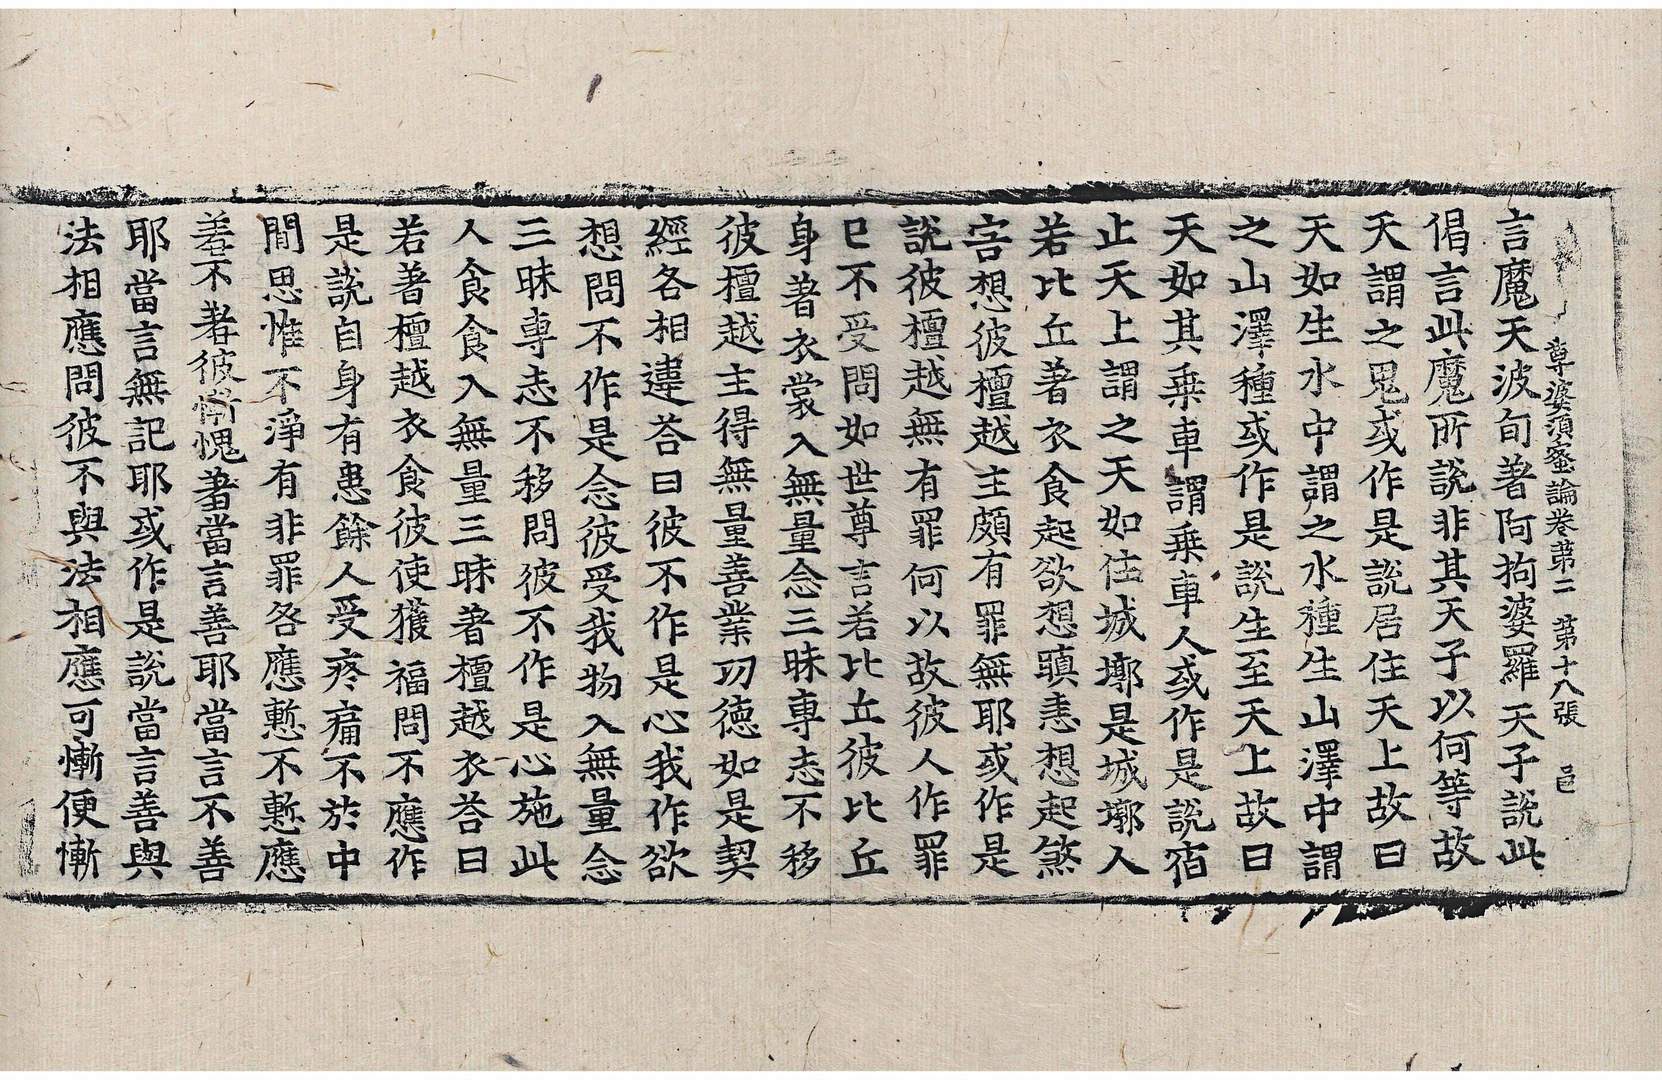 尊婆須蜜論卷第二 第十八張 邑
言魔天波旬著阿拘婆羅天子說此
偈言此魔所說非其天子以何等故
天謂之鬼或作是說居住天上故曰
天如生水中謂之水種生山澤中謂
之山澤種或作是說生至天上故曰
天如其乗車謂乗車人或作是說宿
止天上謂之天如住城墎是城墎人
若比丘著衣食起欲想瞋恚想起煞
害想彼檀越主頗有罪無耶或作是
說彼檀越無有罪何以故彼人作罪
已不受問如世尊言若比丘彼比丘
身著衣裳入無量念三昧專志不移
彼檀越主得無量善業功德如是契
經各相違荅曰彼不作是心我作欲
想問不作是念彼受我物入無量念
三昧專志不移問彼不作是心施此
人食食入無量三昧著檀越衣荅曰
若著檀越衣食彼使獲福問不應作
是說自身有患餘人受疼痛不於中
間思惟不淨有非罪各應慙不慙應
羞不著彼慚愧著當言善耶當言不善
耶當言無記耶或作是說當言善與
法相應問彼不與法相應可慚便慚